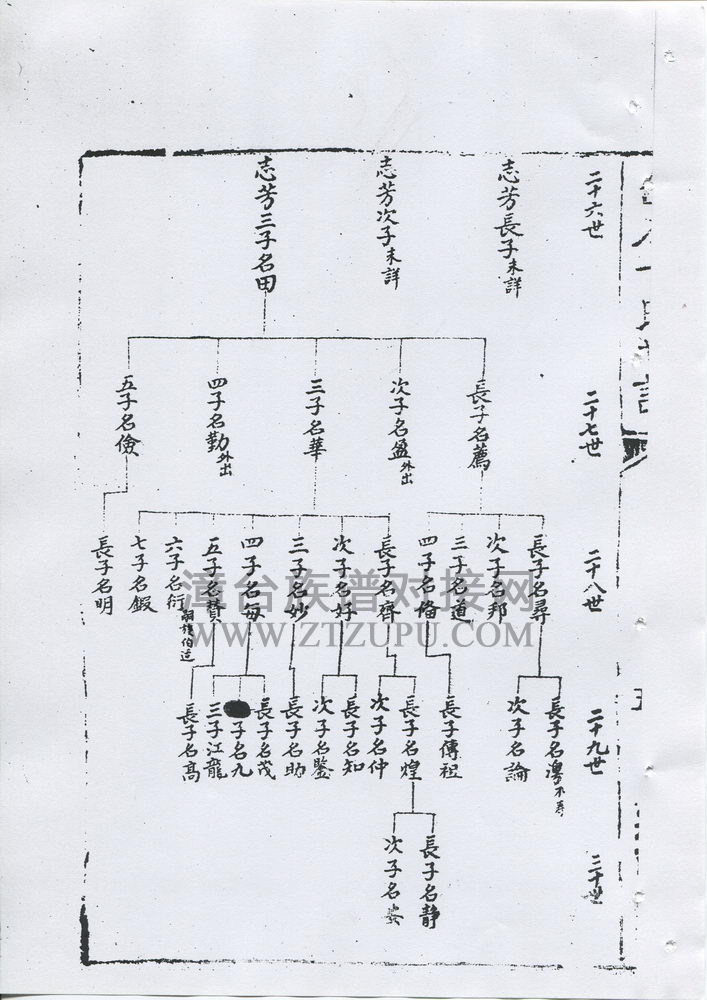 二十六世
志芳長子未詳
志芳次子未詳
志芳三子名田
二十七世
長子名薦
次子名盈外出
三子名華
四子名勤外出
五子名儉
二十八世
長子名尋
次子名邦
三子名道
四子名脩
長子名齊
次子名好
三子名妙
四子名每
五子名贊
六子名衍
七子名鍜
長子名明
二十九世
長子名
次子名論
長子傳祖
長子名煌
次子名仲
長子名知
次子名鑒
長子名助
長子名茂
子名九
三子江龍
長子名高
三十世
長子名靜
次子名
漳台族普对接网
WWW.ZTZUPU.COM